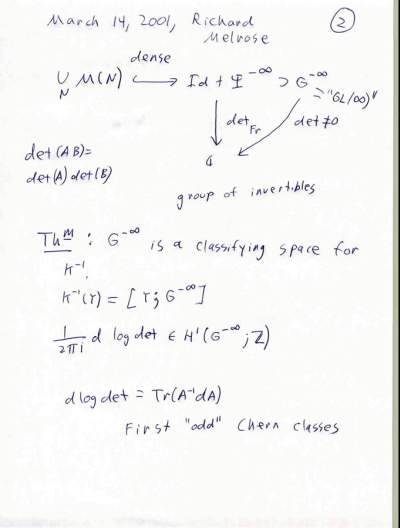 March 14, 2001, Richard Melrose
2
dense
∪_N M(N) ↪ Id + Ψ^{-∞} ⊃ G^{-∞}
="GL(∞)"
det_{Fr}
det≠0
det(AB)=
det(A)det(B)
ℂ
group of invertibles
Th^m : G^{-∞} is a classifying space for
K^{-1}.
K^{-1}(Y) = [Y; G^{-∞}]
1/2πi d log det ∈ H^1(G^{-∞}; ℤ)
d log det = Tr(A^{-1}dA)
First "odd" Chern classes